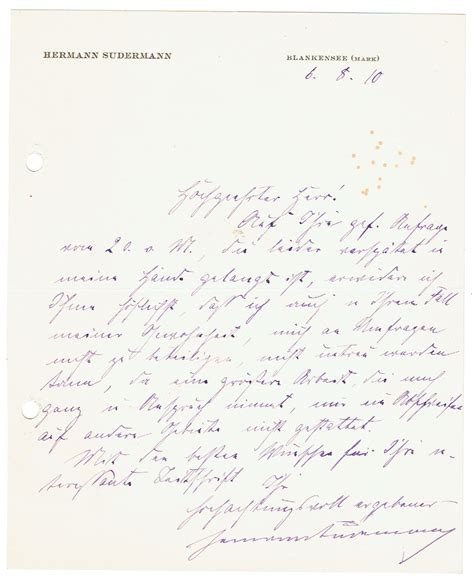 HERMANN SUDERMANN
BLANKENSEE (MARK)
6. 8. 10
Hochgeehrter Herr!
Auf Ihre gef. Anfrage
vom 20. v. M., die leider verspätet in
meine Hände gelangt ist, erwidere ich
Ihnen höflichst, daß ich auch in Ihrem Fall
meiner Gewohnheit, mich an Umfragen
nicht zu beteiligen, nicht untreu werden
kann, da eine größere Arbeit, die mich
ganz in Anspruch nimmt, mir ein Abschweifen
auf andere Gebiete nicht gestattet.
Mit den besten Wünschen für Ihre in-
teressante Zeitschrift Ihr
hochachtungsvoll ergebener
Hermann Sudermann